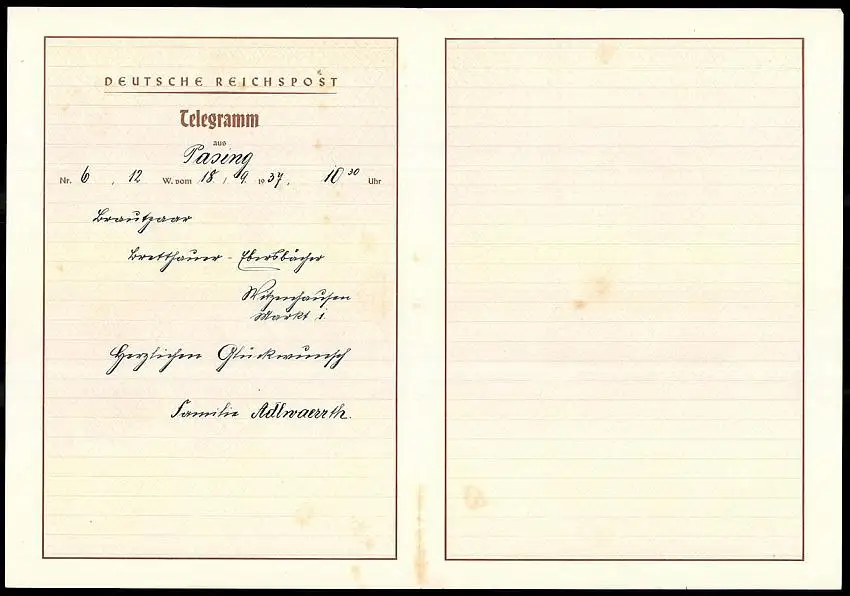 DEUTSCHE REICHSPOST
Telegramm
aus
Pasing
Nr. 6 , 12 W. vom 18 / 9. 1937, 10 30 Uhr
Brautpaar
Bretthauer - Ebersbächer
Witzenhausen
Markt 1.
Herzlichen Glückwunsch
Familie Adlwaerrth.